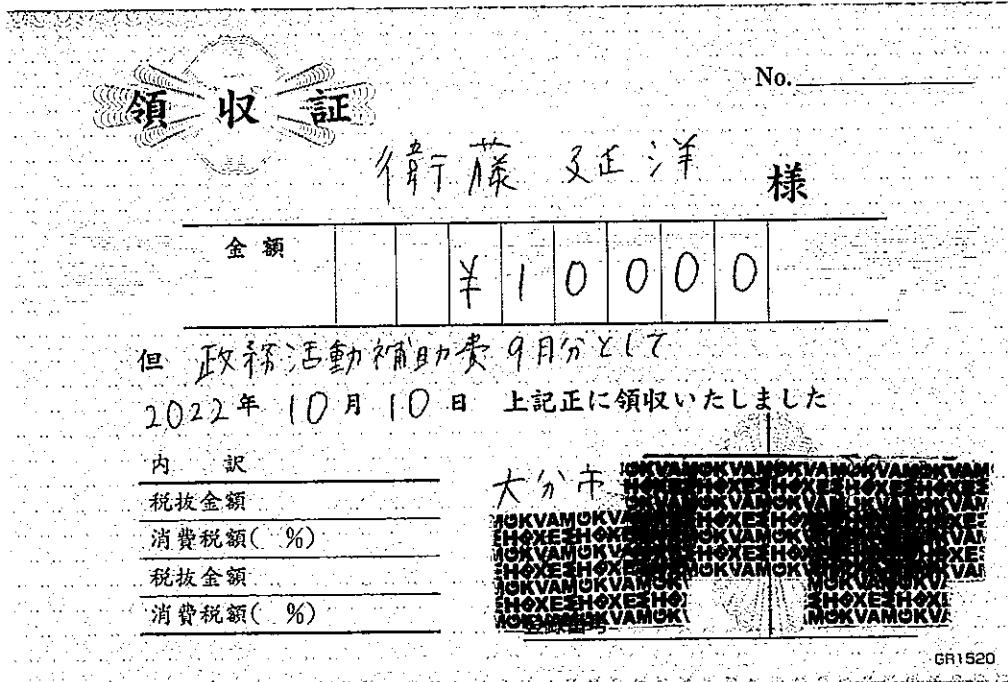 領収証
No.
衛藤 延洋 様
金額 ¥10000
但 政務活動補助費9月分として
2022年 10月 10日 上記正に領収いたしました
内 訳
税抜金額
消費税額( %)
税抜金額
消費税額( %)
大分市
登録番号
GR1520